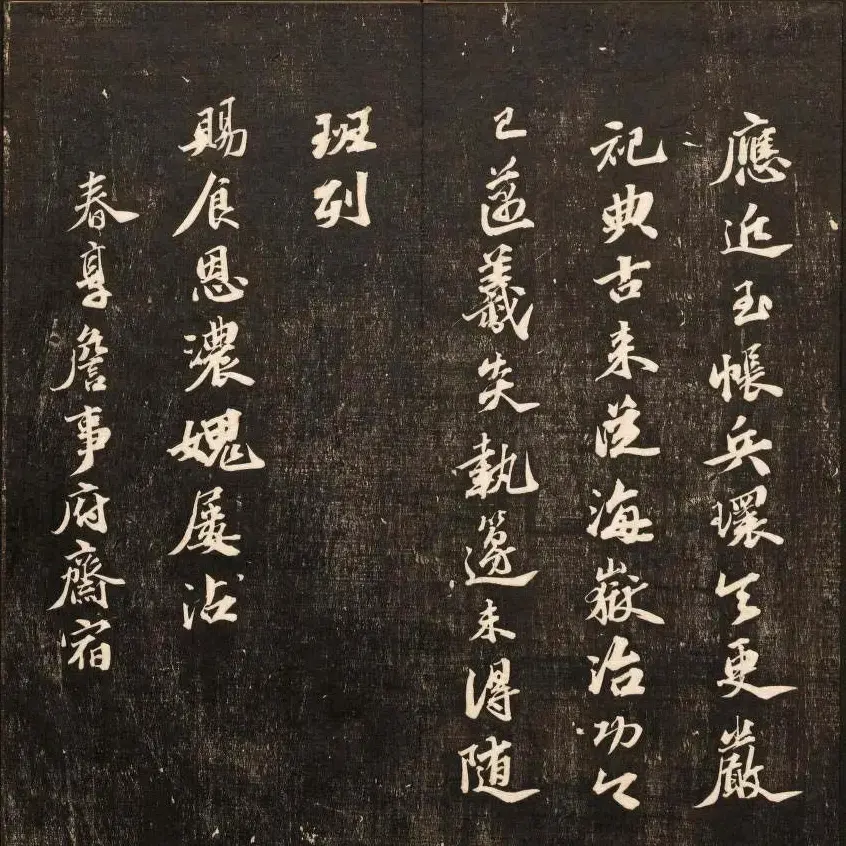 應近玉帳兵環令更嚴
祀典古來從海嶽治功今
已邁羲炎執籩未得隨
班列
賜食恩濃媿屢沾
春享詹事府齋宿